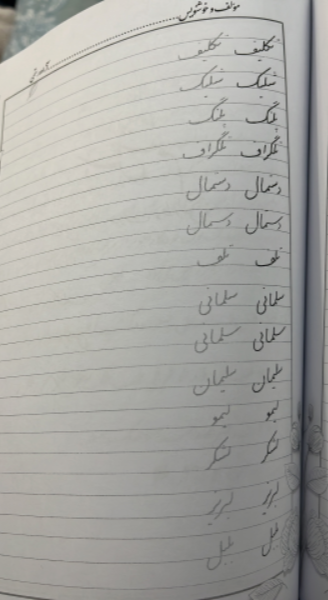 مؤلف و خوشنویس
تکلیف تکلیف
شلیک شلیک
تلگراف تلگراف
دستمال دستمال
دستمال دستمال
تلف تلف
سلمانی سلمانی
سلمانی سلمانی
سلیمان سلیمان
لیمو لیمو
لشکر لشکر
لبریز لبریز
بلبل بلبل